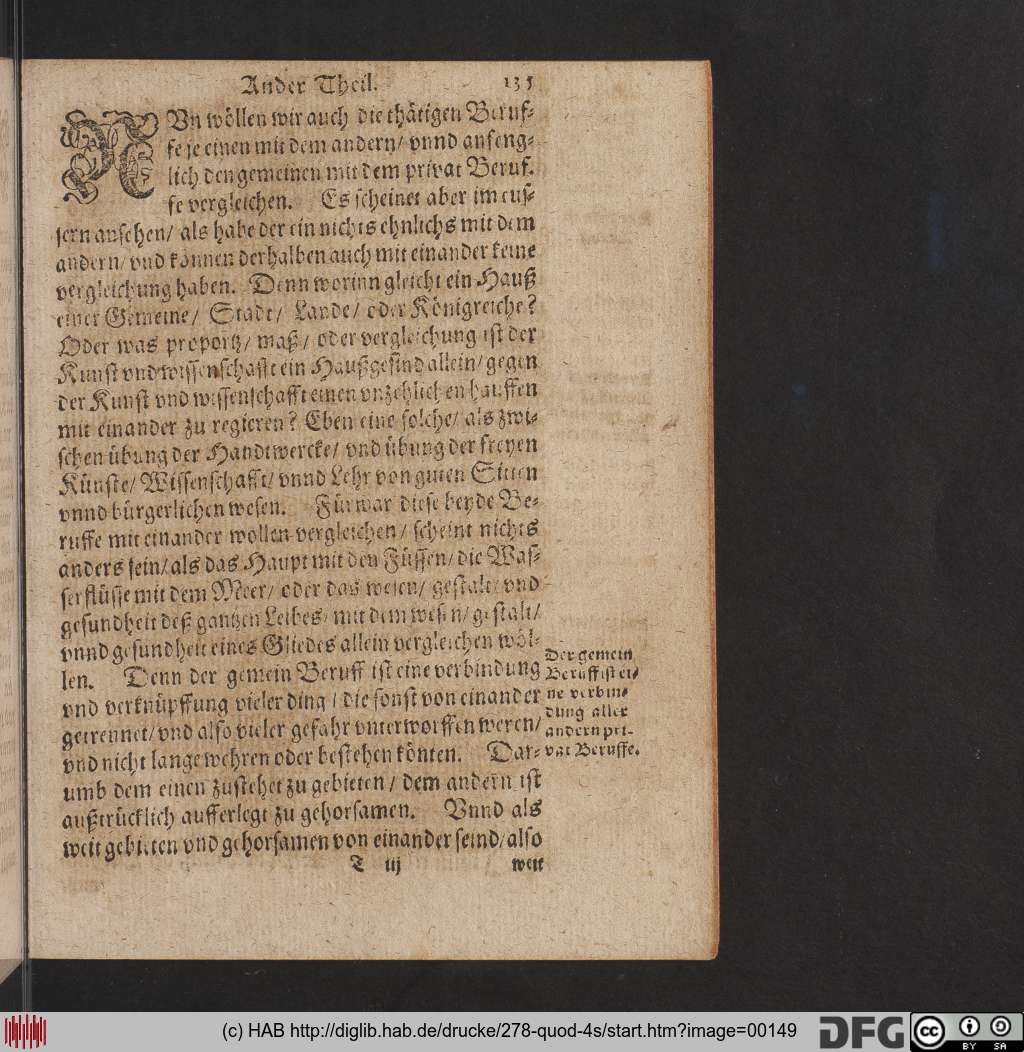 Ander Theil. 135
NUn wöllen wir auch die thätigen Beruf-
fe je einen mit dem andern/ vnnd anfeng-
lich den gemeinen mit dem privat Beruf-
fe vergleichen. Es scheinet aber im eus-
sern ansehen/ als habe der ein nichts ehnlichs mit dem
andern/ vnd können derhalben auch mit einander keine
vergleichung haben. Denn worinn gleicht ein Hauß
einer Gemeine/ Stadt/ Lande/ oder Königreiche?
Oder was proportz/ maß/ oder vergleichung ist der
Kunst vnd wissenschafft ein Haußgesind allein/ gegen
der Kunst vnd wissenschafft einen vnzehlichen hauffen
mit einander zu regieren? Eben eine solche/ als zwi-
schen übung der Handtwercke/ vnd übung der freyen
Künste/ Wissenschafft/ vnnd Lehr von guten Sitten
vnnd bürgerlichen wesen. Fürwar diese beyde Be-
ruffe mit einander wollen vergleichen/ scheint nichts
anders sein/ als das Haupt mit den Füssen/ die Was-
serflüsse mit dem Meer/ oder das wesen/ gestalt/ vnd
gesundheit deß gantzen Leibes/ mit dem wesen/ gestalt/
vnnd gesundheit eines Gliedes allein vergleichen wöl-
len. Denn der gemein Beruff ist eine verbindung
vnd verknüpffung vieler ding/ die sonst von einander
getrennet/ vnd also vieler gefahr vnterworffen weren/
vnd nicht lange wehren oder bestehen könten. Dar-
umb dem einen zustehet zu gebieten/ dem andern ist
außtrücklich aufferlegt zu gehorsamen. Vnnd als
weit gebieten vnd gehorsamen von einander seind/ also
T iij weit
Der gemein
Beruff ist ei-
ne verbin-
dung aller
andern pri-
vat Beruffe.
(c) HAB http://diglib.hab.de/drucke/278-quod-4s/start.htm?image=00149
DFG
cc BY SA